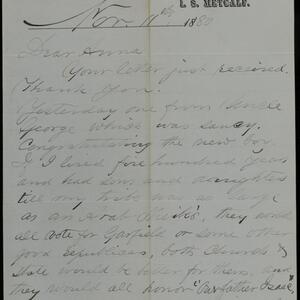 I. S. METCALF.
Nov. 11th 1880
Dear Anna
Your letter just received.
Thank you.
Yesterday one from Uncle
George which was saucy.
Congratulating the new boy.
If I lived five hundred years
and had sons and daughters
till my tribe was as large
as an Arab Sheik's, they would
all vote for Garfield or some other
good Republican, both Church &
State would be better for them, and
they would all honor "Our father Isaac"